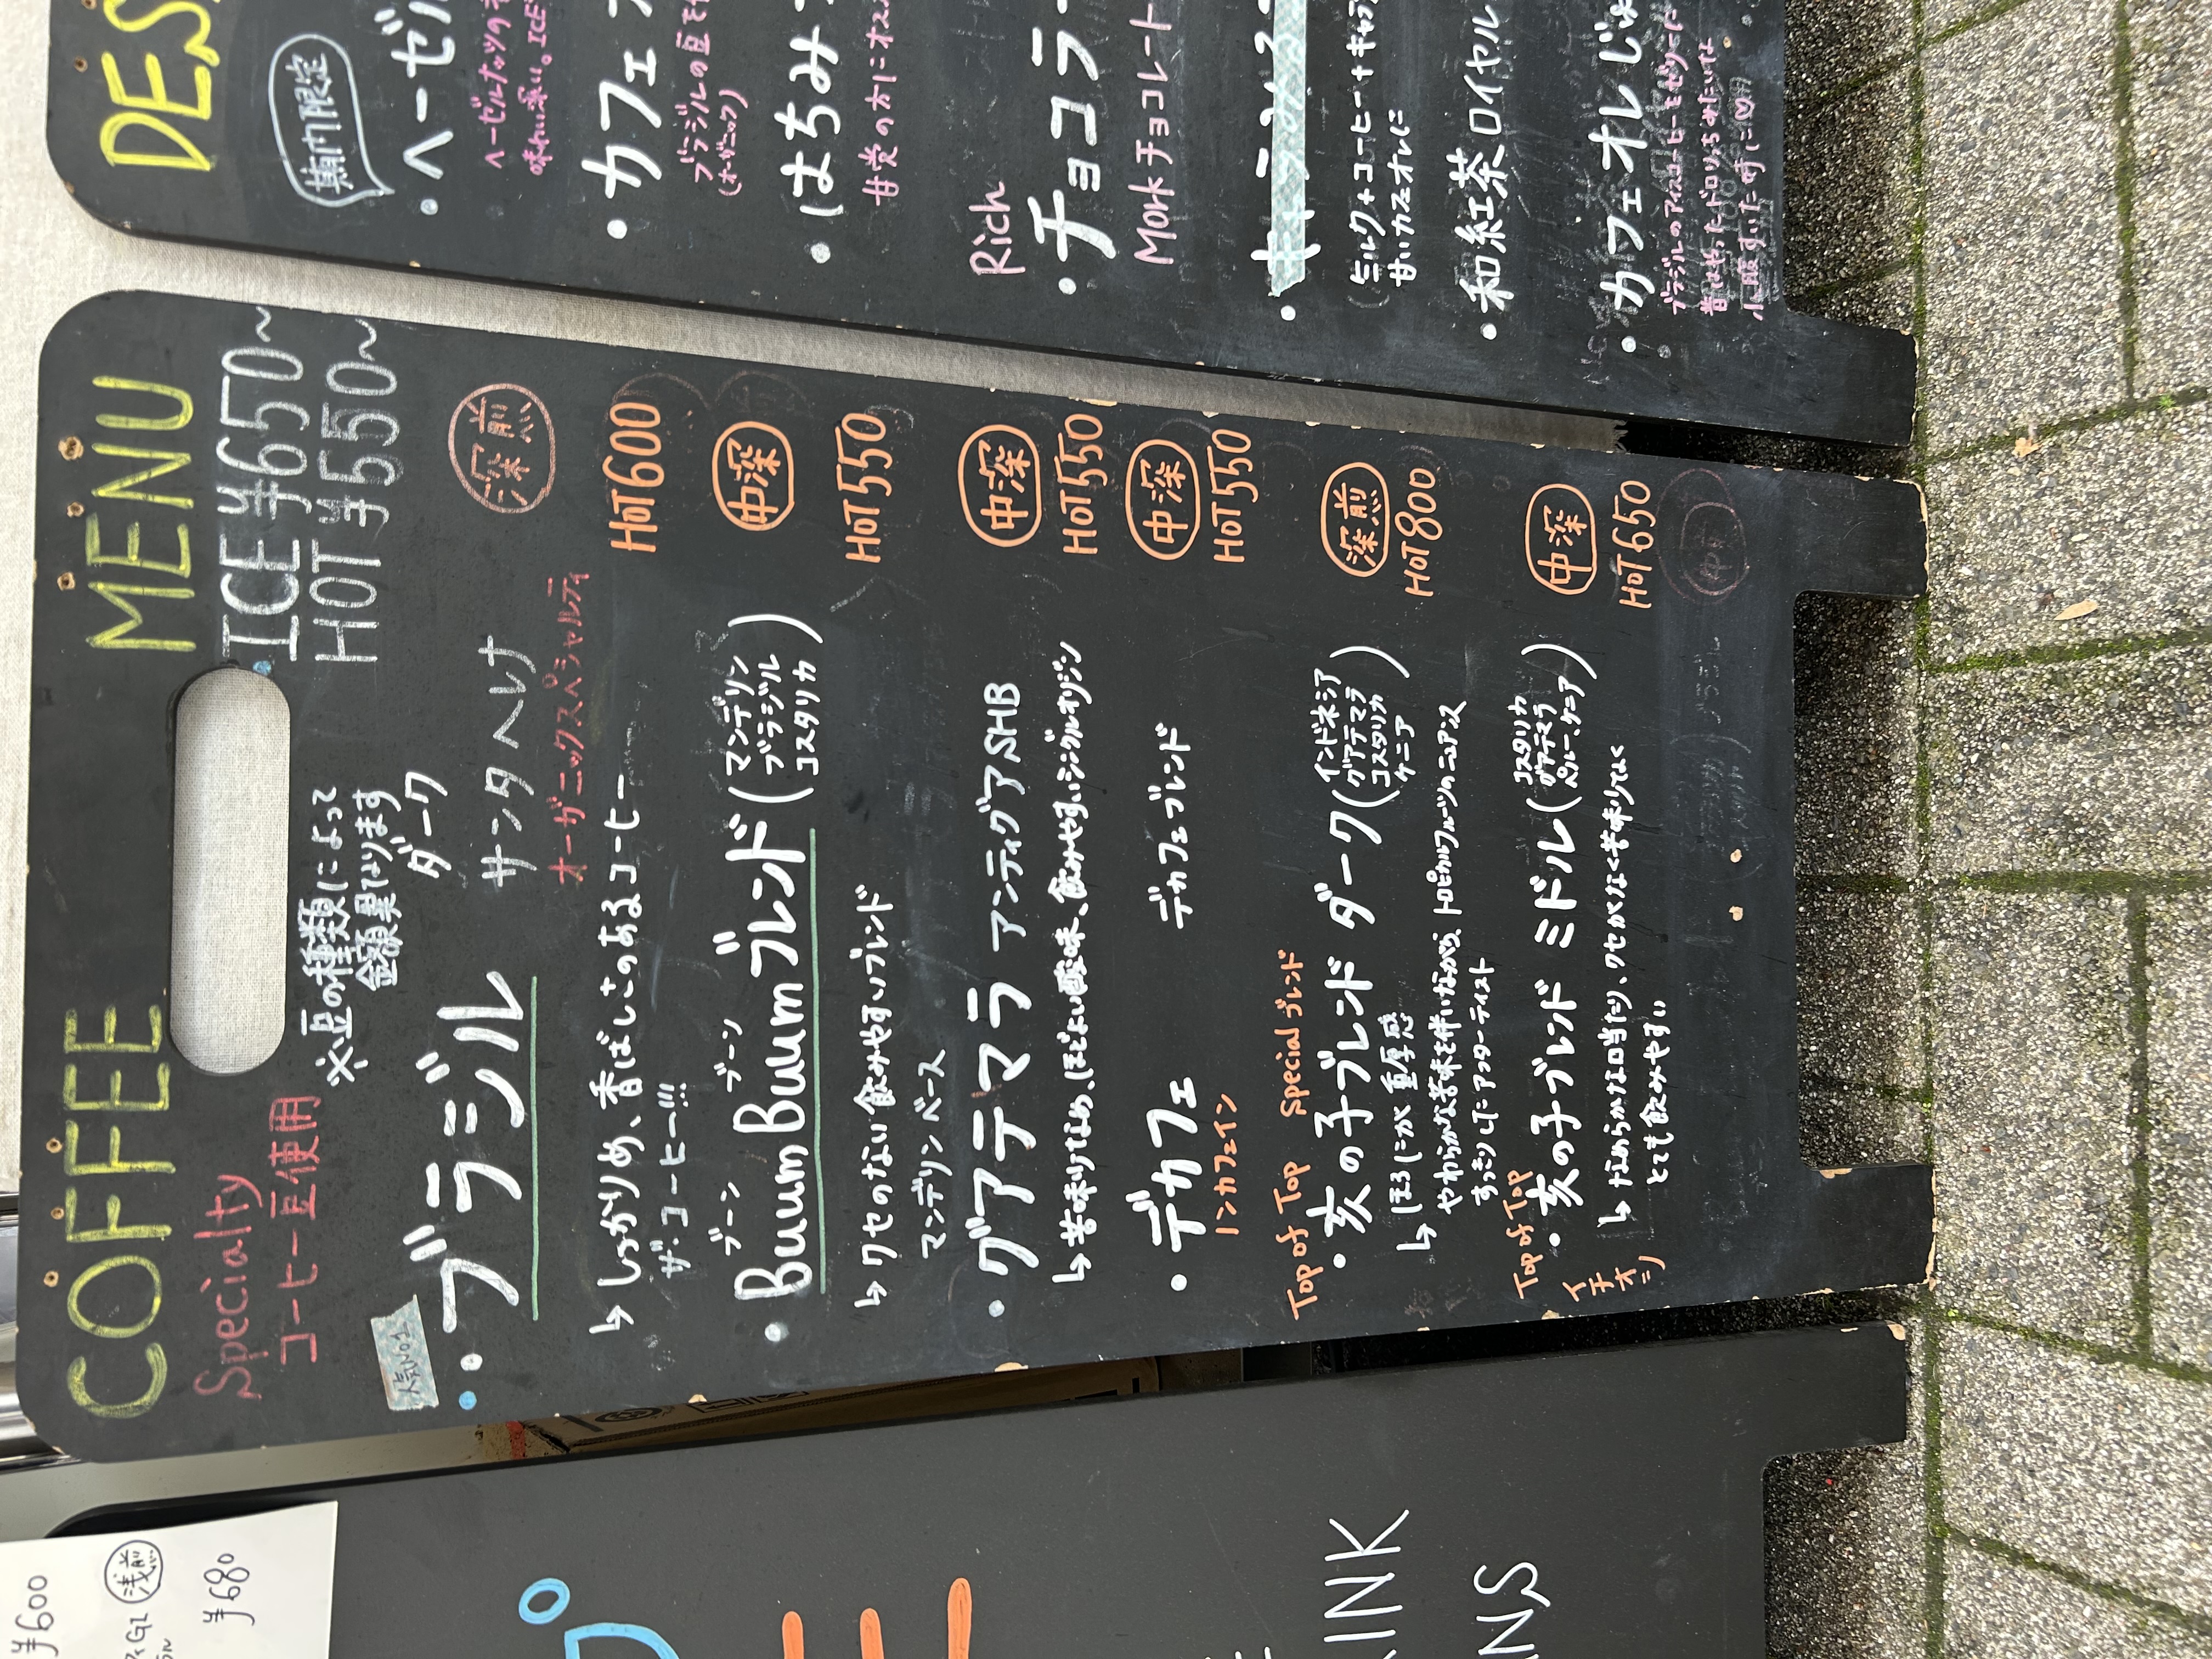 COFFEE MENU
Specialty
コーヒー豆使用
ICE ¥650~
HOT ¥550~
※豆の種類によって
金額異なります
人気No1
・ブラジル ダーク
サンタヘレナ
深煎
オーガニックスペシャルティ
HOT600
↳しっかりめ、香ばしさのあるコーヒー
ザ・コーヒー!!!
ブーン ブーン
・BuuumBuuumブレンド(マンデリン
ブラジル
コスタリカ)
中深
HOT550
↳クセのない飲みやすいブレンド
マンデリンベース
・グアテマラ アンティグアSHB
中深
HOT550
↳苦味ひかえめ、ほどよい酸味、飲みやすいシングルオリジン
・デカフェ デカフェブレンド
ノンカフェイン
中深
HOT550
Top of Top Special ブレンド
・亥の子ブレンド ダーク(インドネシア
グアテマラ
コスタリカ
ケニア)
深煎
HOT800
↳ほろにがく重厚感
やわらかな苦味を伴いながら、トロピカルフルーツのニュアンス
すっきりしたアフターテイスト
Top of Top
イチオシ
・亥の子ブレンド ミドル(コスタリカ
グアテマラ
ペルー、ケニア)
中深
HOT650
↳なめらかな口当たり、クセがなく苦味少なく
とても飲みやすい
DES
期間限定
・ヘーゼル
ヘーゼルナッツの
味わい深い。ICE
・カフェ
ブラジルの豆を
(オーガニック)
・はちみ
甘党の方にオス
Rich
・チョコラ
Morkチョコレート
(ミルク+コーヒー+キャラ
甘いカフェオレに
・和紅茶ロイヤル
・カフェオレ
小腹すいた時に♡
¥600
浅煎
¥680
プ
INK
ANS